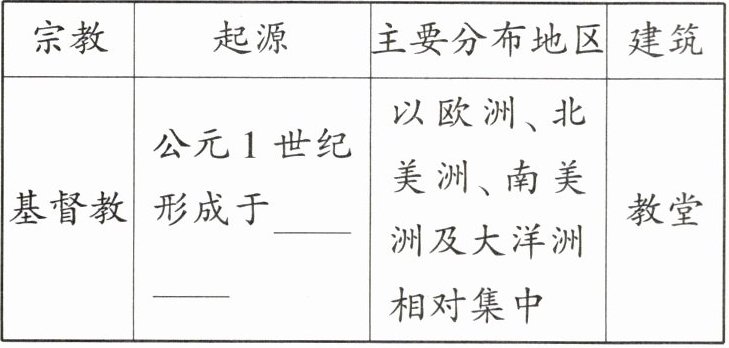 宗教 起源 主要分布地区 建筑
基督教
公元1世纪
形成于____
____
以欧洲、北
美洲、南美
洲及大洋洲
相对集中
教堂